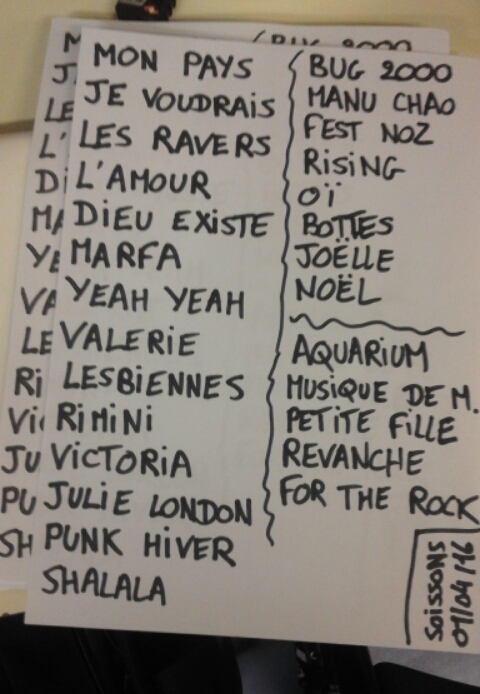 MON PAYS
JE VOUDRAIS
LES RAVERS
L'AMOUR
DIEU EXISTE
MARFA
YEAH YEAH
VALERIE
LESBIENNES
RIMINI
VICTORIA
JULIE LONDON
PUNK HIVER
SHALALA
BUG 2000
MANU CHAO
FEST NOZ
RISING
OÏ
BOTTES
JOËLLE
NOËL
AQUARIUM
MUSIQUE DE M.
PETITE FILLE
REVANCHE
FOR THE ROCK
SOISSONS
07/04/16
M
J
LE
L'
Di
MA
YE
VA
LE
Ri
Vi
JU
PU
SH
BUG 2000